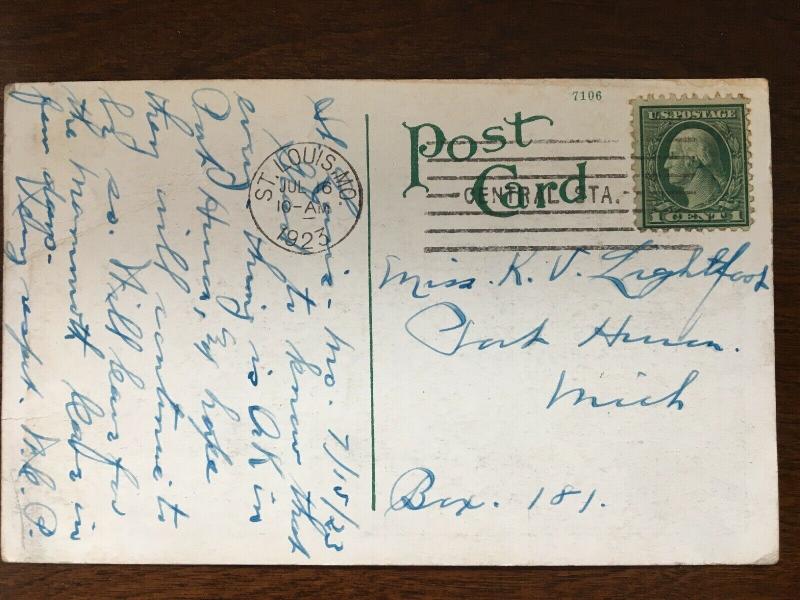 7106
Post
Card
U.S. POSTAGE
1 CENT 1
ST. LOUIS, MO.
JUL 16
10-AM
1923
CENTRAL STA.
St Louis - Mo. 7/15/23
to know that
every thing is OK in
Port Huron, & hope
they will continue to
be so. Will leave for
the mammoth Cafe in
few days -
Very respt. W. C. P.
Miss. K. V. Lightfoot
Port Huron.
Mich
Box. 181.